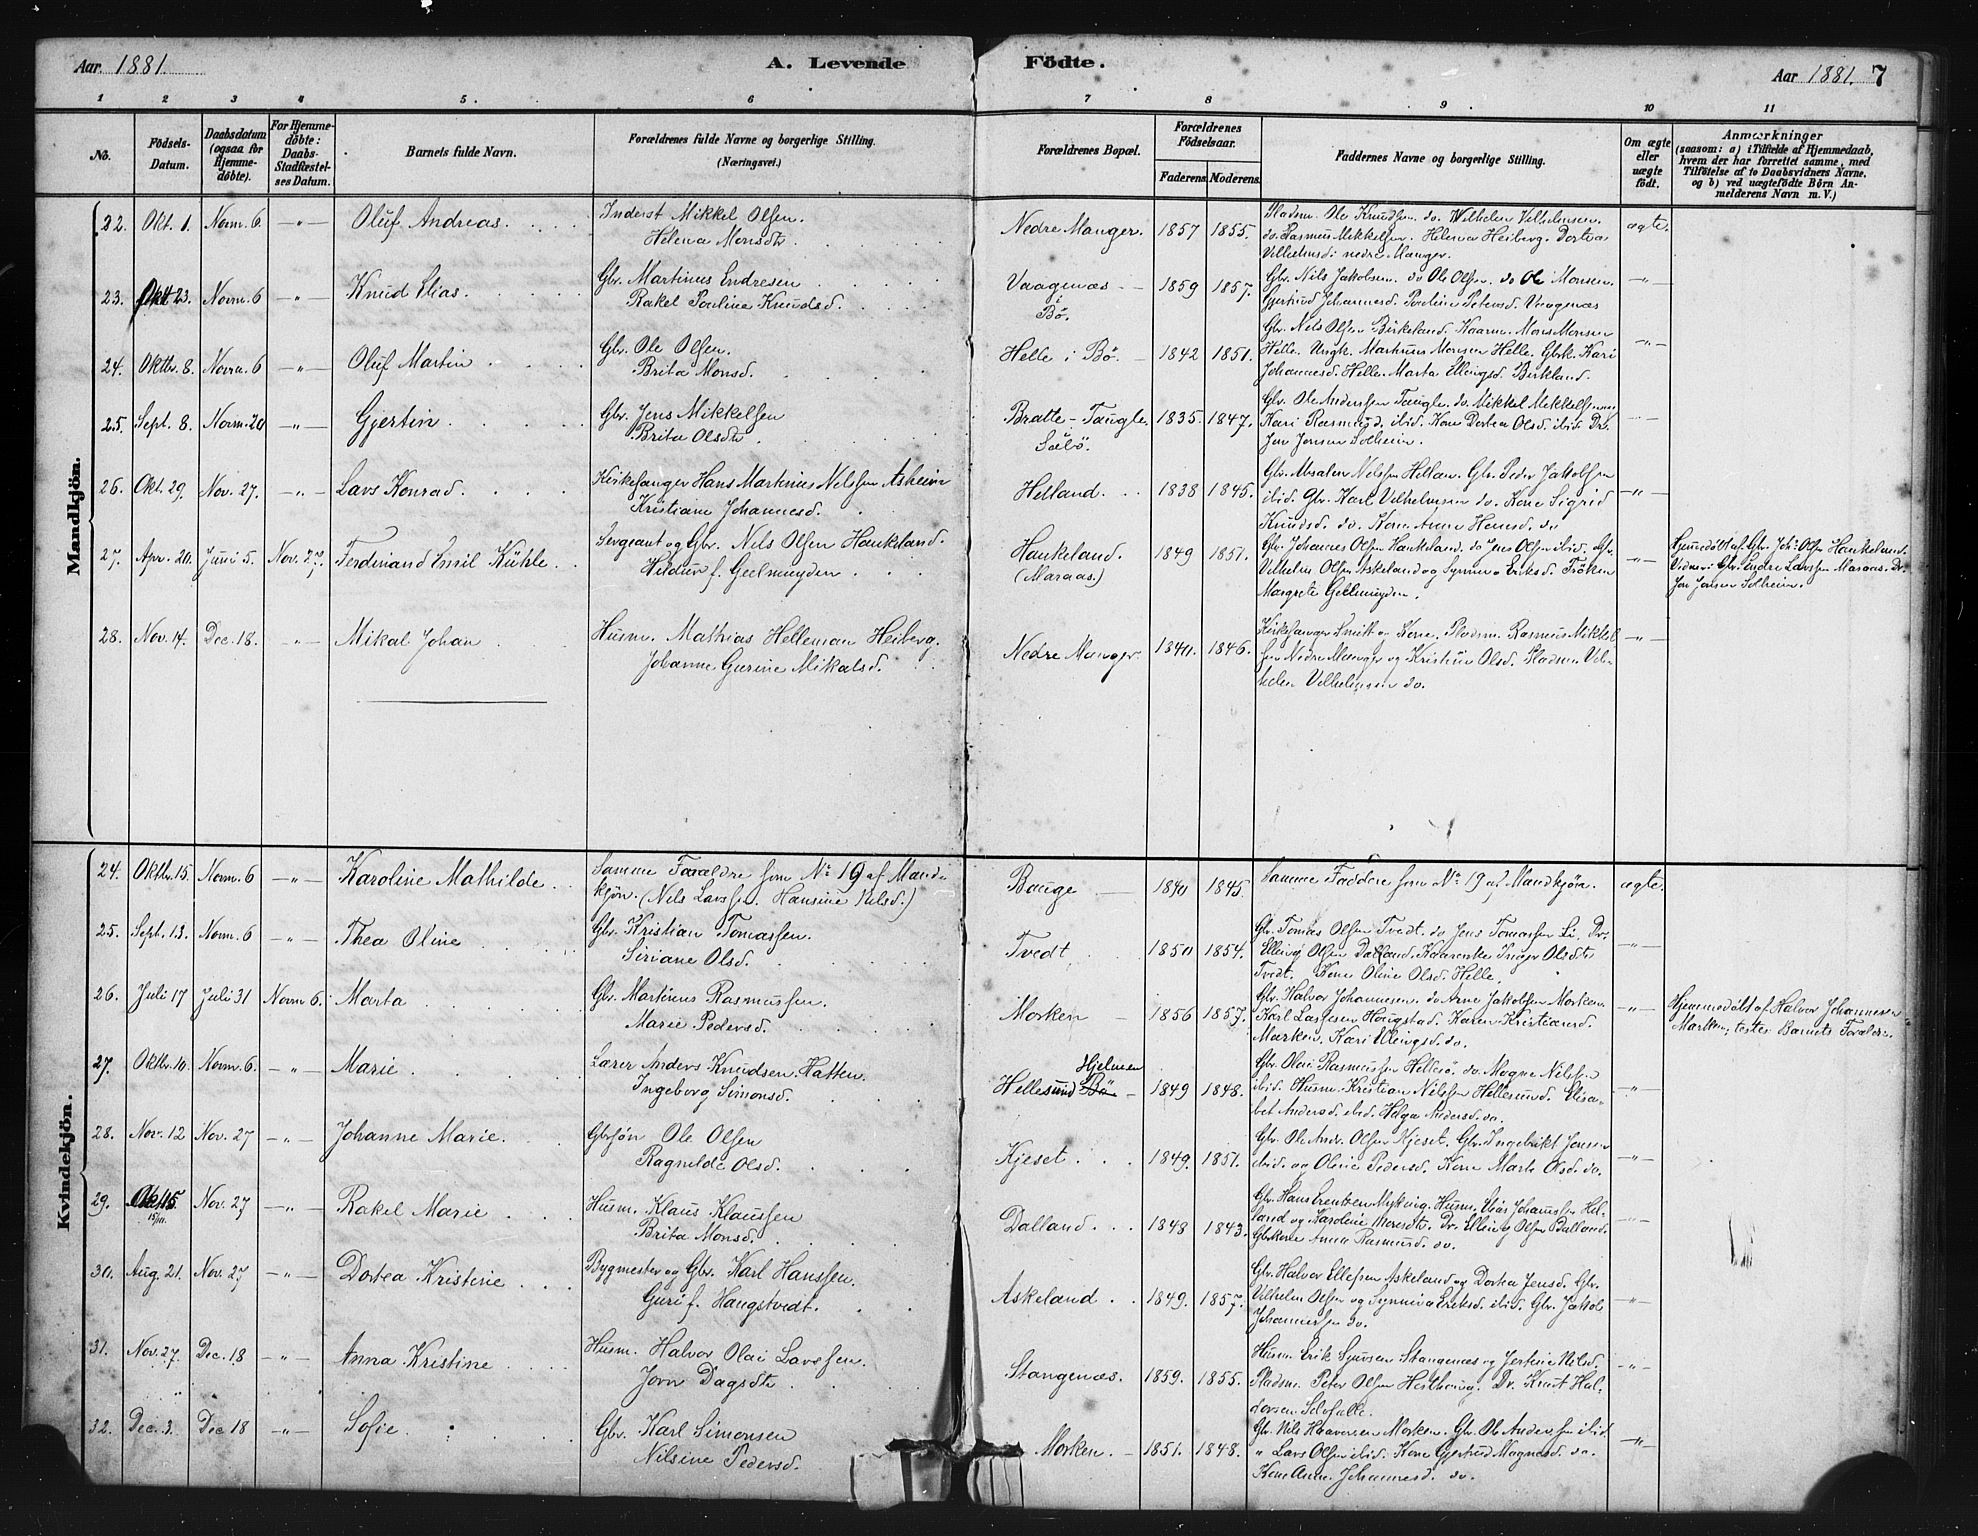 Aar 1881. A. Levende Födte. Aar 1881. 7
1 2 3 4 5. 6 7 8 9 10 11
No. Födsels-Datum. Daabsdatum (ogsaa for Hjemmedöbte). For Hjemmedöbte: Daabs-Stadfæstelses Datum. Barnets fulde Navn. Forældrenes fulde Navne og borgerlige Stilling. (Næringsvei.) Forældrenes Bopæl. Forældrenes Födselsaar. Faderens. Moderens. Faddernes Navne og borgerlige Stilling. Om ægte eller uægte födt. Anmærkninger (saasom: a) i Tilfælde af Hjemmedaab, hvem der har forrettet samme, med Tilföielse af to Daabsvidners Navne, og b) ved uægtefödte Börn Anmelderens Navn m. V.)
Mandkjön.
22. Okt. 1. Novm. 6. -"- Oluf Andreas. Inderst Mikkel Olsen. Nedre Manger. 1857 1855. Pladsm. Ole Knudsen. do. Wilhelm Vilhelmsen. ægte.
Helena Monsdtr. do. Rasmus Mikkelsen. Helena Heiberg. Dortea
Vilhelmsd. nedre Manger.
23. Okt 23. Novm. 6 -"- Knud Elias. Gbr. Martinus Endresen Vaagenæs i Bö. 1859 1857. Gbr. Nils Jakobsen. do Ole Olsen. do Ole Monsen -"-
Rakel Pauline Knudsd. Gjertrud Johannesd. Paulina Petersd. Vaagenæs
24. Oktbr. 8. Novm. 6 -"- Oluf Martin Gbr. Ole Olsen. Helle i Bö. 1842 1851. Gbr. Nels Olsen Birkeland. Kaarm. Mons Monsen -"-
Brita Monsd. Helle. Ungk. Martinus Monsen Helle. Gbrk. Kari
Johannesd. Helle. Marta Ellingsd. Birkland.
25. Sept. 8. Novm. 20 -"- Gjertin. Gbr. Jens Mikkelsen Bratte-Taugle. Sæbö. 1835. 1847. Gbr. Ole Anderssen Taugle. do. Mikkel Mikkelsen
Brita Olsdtr. Kari Rasmusd. ibid. Kone Dortea Olsd. ibid. Dr.
Jon Jensen Solheim.
26. Okt. 29. Nov. 27. -"- Lars Konrad. Kirkesanger Hans Martinus Nilssen Asheim Helland. 1838 1845. Gbr. Absalon Nilssen Hellan. Gbr. Peder Jakobsen -"-
Kristiane Johannesd. ibid. Gbr. Karl Vilhelmsen do. Kone Sigrid
Knudsd. do. Kone Anne Hansd. do
27. Apr. 20. Juni 5. Nov. 27. Ferdinand Emil Kühle. Sergeant og Gbr. Nils Olsen Haukeland. Haukeland. (Maraas) 1849 1851. Gbr. Johannes Olsen Haukeland. do Jens Olsen ibid. Gbr. -"- Hjemmedöbt af Gbr. Joh. Olsen Haukeland.
Hildur f. Geelmuyden. Vilhelm Olsen Askeland og Synneva Eriksd. Fröken Vidner: Gbr. Endre Larssen Maraas. Dr.
Margrete Geelmuyden. Jon Jensen Solheim.
28. Nov. 14. Dec. 18. -"- Mikal Johan Husm. Mathias Helleman Heiberg. Nedre Manger. 1840. 1846. Kirkesanger Smitt og Kone. Pladsm. Rasmus Mikkel- -"-
Johanne Gurine Mikalsd. sen Nedre Manger og Kristine Olsd. Pladsm. Vil-
helm Vilhelmsen do.
Kvindekjön.
24. Oktbr. 15. Novm 6 -"- Karoline Mathilde. Samme Forældre som No 19 af Mand- Bauge 1840 1845. Samme Faddere som No 19 af Mandkjön. ægte.
kjön. (Nils Larssen. Hansine Nilsd.)
25. Sept. 13. Novm. 6 -"- Thea Oline Gbr. Kristian Tomassen. Tvedt 1850 1854. Gbr. Tomas Olsen Tvedt. do Jens Tomassen Li. Dr. -"-
Siriane Olsd. Elling Olsen Dalland. Kaarenke Inger Olsdtr
Tvedt. Kone Oline Olsd. Helle.
26. Juli 17 Juli 31 Novm 6. Marta Gbr. Martinus Rasmussen. Morken 1856 1857. Gbr. Halvor Johannesen. do Arne Jakobsen Morken. -"- Hjemmedöbt af Halvor Johannesen
Marie Pedersd. Karl Lassesen Haugstad. Karen Kristiansd. Morken, testes Barnets Forældre.
Morken. Kari Ellingsd. do.
27. Oktbr. 10. Novm. 6. -"- Marie Lærer Anders Knudsen Hatten. Hellesund Bö Hjelmen 1849 1848. Gbr. Olai Rasmussen Hellesö. do. Magne Nilsen -"-
Ingeborg Simonsd. ibid. Husm. Kristian Nilssen Hellesund. Elisa-
bet Andersd. ibid. Helga Andersd. do.
28. Nov. 12 Nov. 27 -"- Johanne Marie. Gbrsön Ole Olsen Kjeset. 1849. 1851. Gbr. Ole Andr. Olsen Kjeset. Gbr. Ingebrikt Jensen -"-
Ragnilde Olsd. ibid. og Oline Pedersd. Kone Marta Olsd. do.
29. 15/10. Nov. 27 -"- Rakel Marie Husm. Klaus Klaussen Dalland. 1848 1843. Gbr. Hans Erentzen Myking. Husm. Elias Johannessen Hel- -"-
Brita Monsd. land og Karoline Monsdtr. Dr. Elling Olsen Dalland.
Gbrkone Anna Rasmusd. do.
30. Aug. 21. Nov. 27 -"- Dortea Kristine Bygmester og Gbr. Karl Hanssen. Askeland 1849. 1857. Gbr. Halvor Ellefsen Askeland og Dortea Jensd. Gbr. -"-
Guri f. Haugstvedt. Vilhelm Olsen og Synneva Eriksd. ibid. Gbr. Jakob
Johannessen do.
31. Nov. 27. Dec. 18 -"- Anna Kristine Husm. Halvor Olai Larssen. Stangenæs. 1859. 1855. Husm. Erik Sjursen Stangenæs og Jertine Nilsd. -"-
Jorn Dagsdtr Pladsm. Peter Olsen Hestberg. Dr. Knut Hal-
dorsen Selvfalle.
32. Dec. 3. Dec 18 -"- Sofie. Gbr. Karl Simonsen Morken. 1851. 1848. Gbr. Nils Haaversen Morken. Gbr. Ole Anderssen ibid. -"-
Nilsine Pedersd. " Lars Olsen ibid. Kone Gjertrud Magnesd. do.
Kone Anne Johannesd. do.